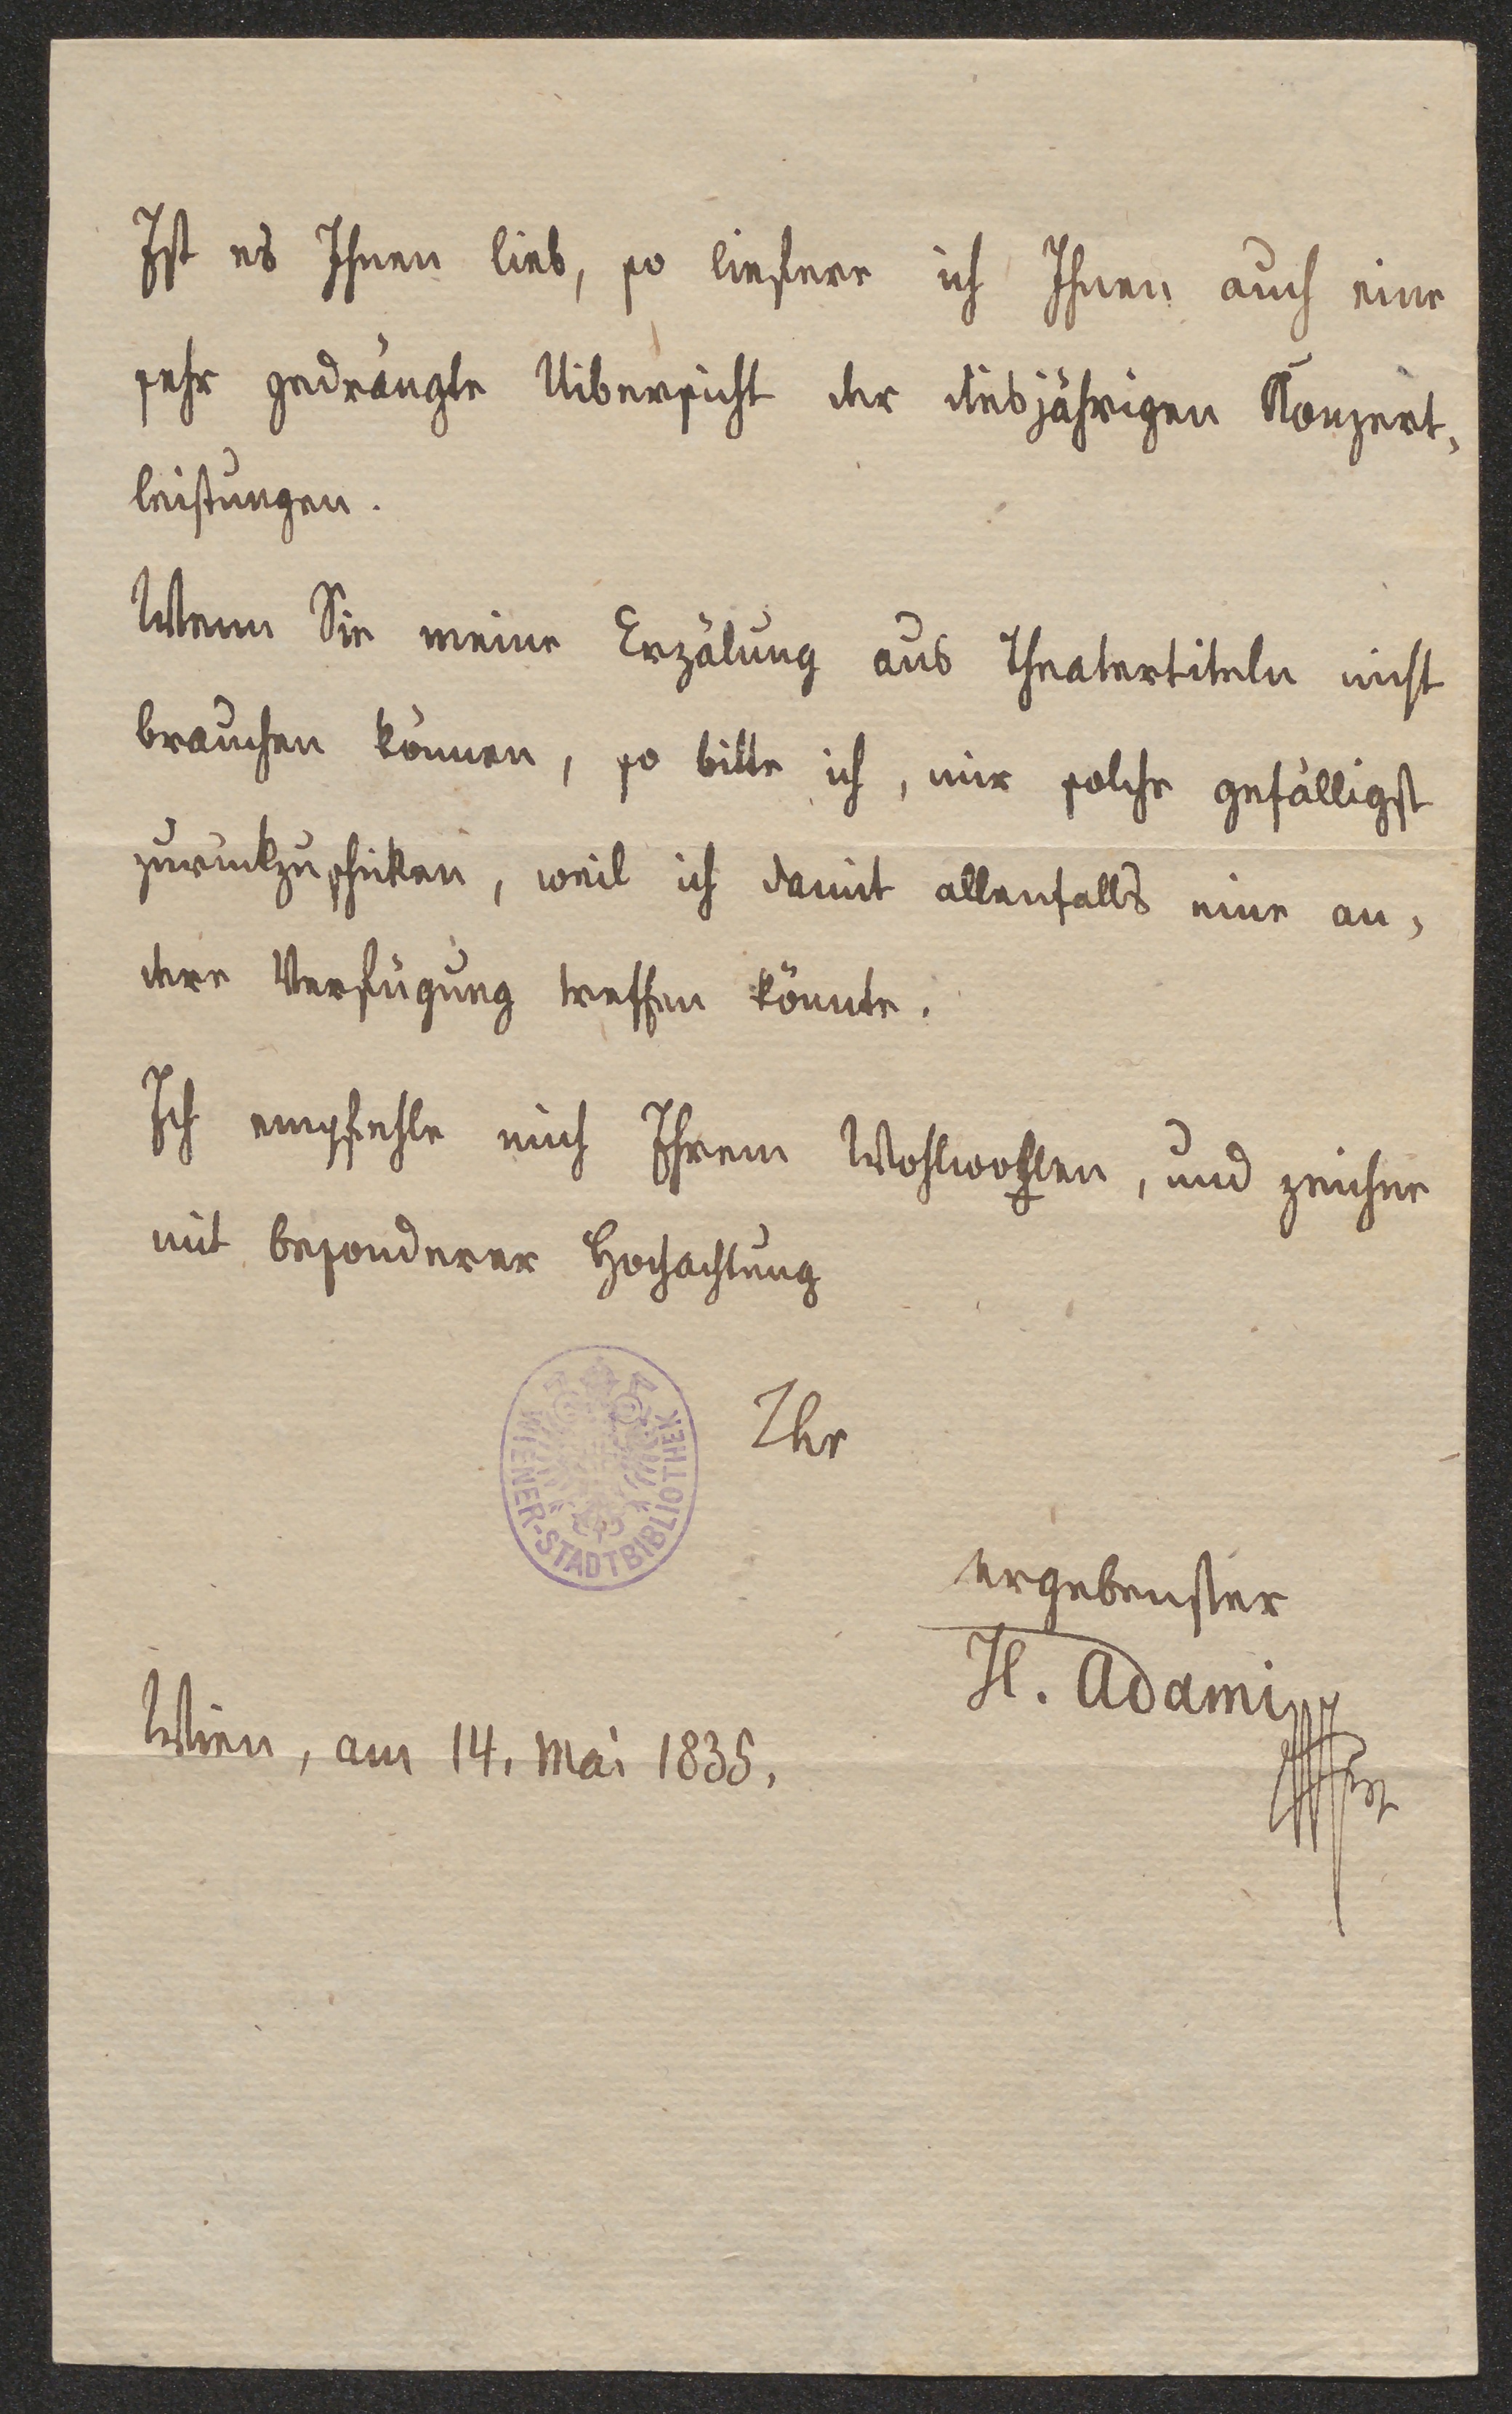 Ist es Ihnen lieb, so liefere ich Ihnen auch eine
sehr gedrängte Uibersicht der diesjährigen Konzert-
leistungen.
Wenn Sie meine Erzälung aus Theatertiteln nicht
brauchen können, so bitte ich, mir solche gefälligst
zurückzuschiken, weil ich damit allenfalls eine an-
dere Verfügung treffen könnte.
Ich empfehle mich Ihrem Wohlwohlen, und zeichne
mit besonderer Hochachtung
Ihr
WIENER-STADTBIBLIOTHEK
ergebenster
H. Adami
Wien, am 14. Mai 1835.